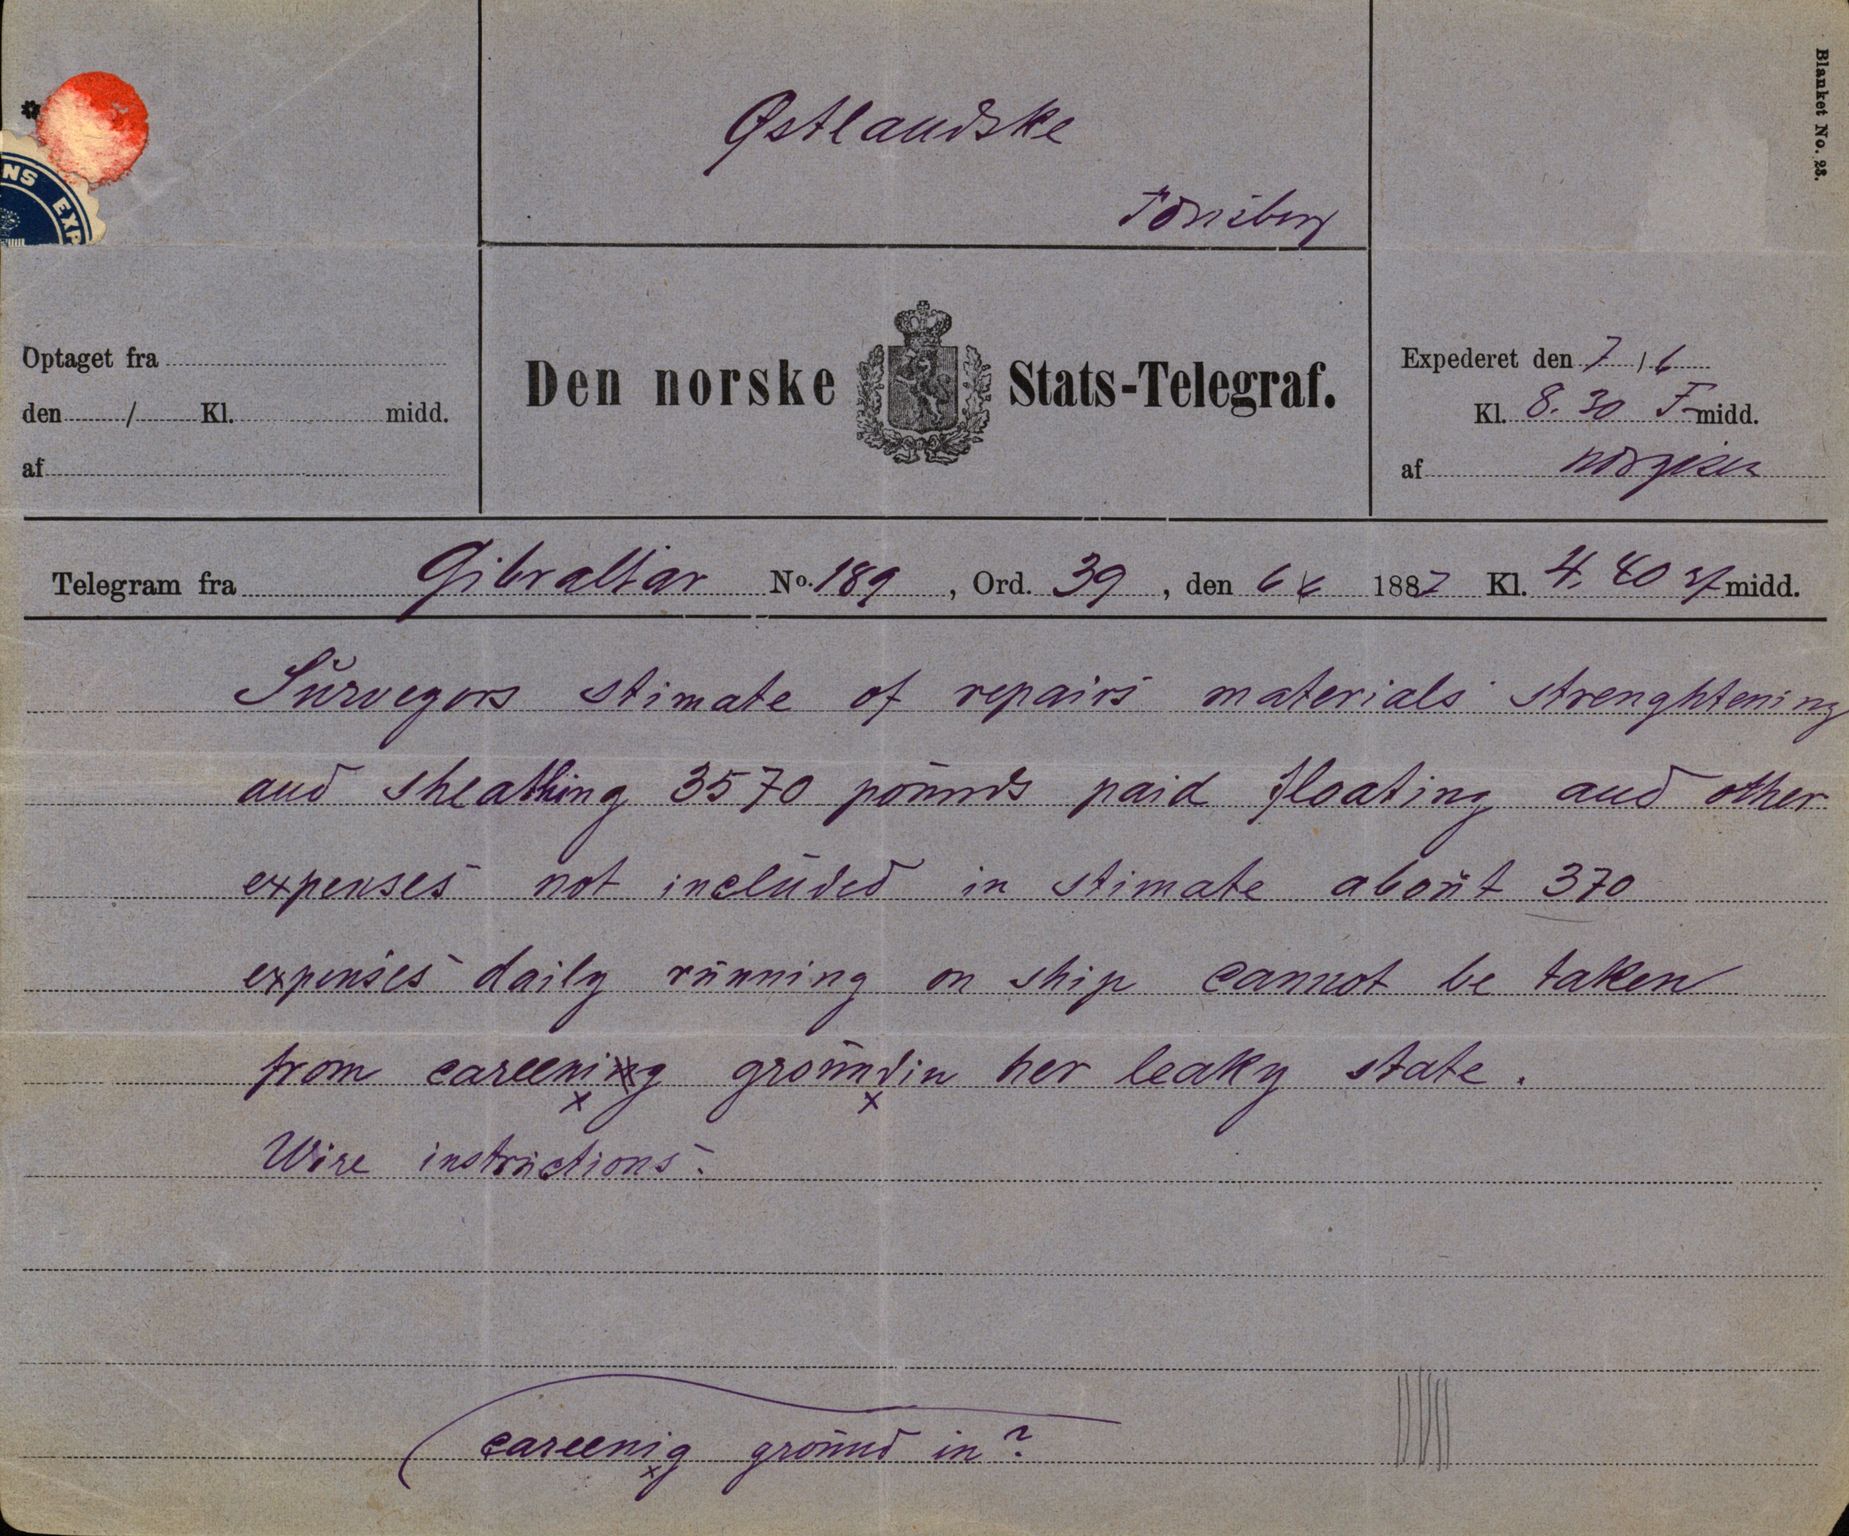 Blanket No. 28.
*
NS EXP
Østlandske
Tønsberg
Optaget fra
den / Kl. midd.
af
Den norske Stats-Telegraf.
Expederet den 7 / 6
Kl. 8. 30 F midd.
af
Telegram fra Gibraltar No. 189, Ord. 39, den 6/6 1887 Kl. 4. 40 midd.
Surveyors stimate of repairs materials strenghtening
and sheathing 3570 pounds paid floating and other
expenses not included in stimate about 370
expenses daily running on ship cannot be taken
from careening groundin her leaky state.
x x
Wire instructions.
careenig ground in?
x